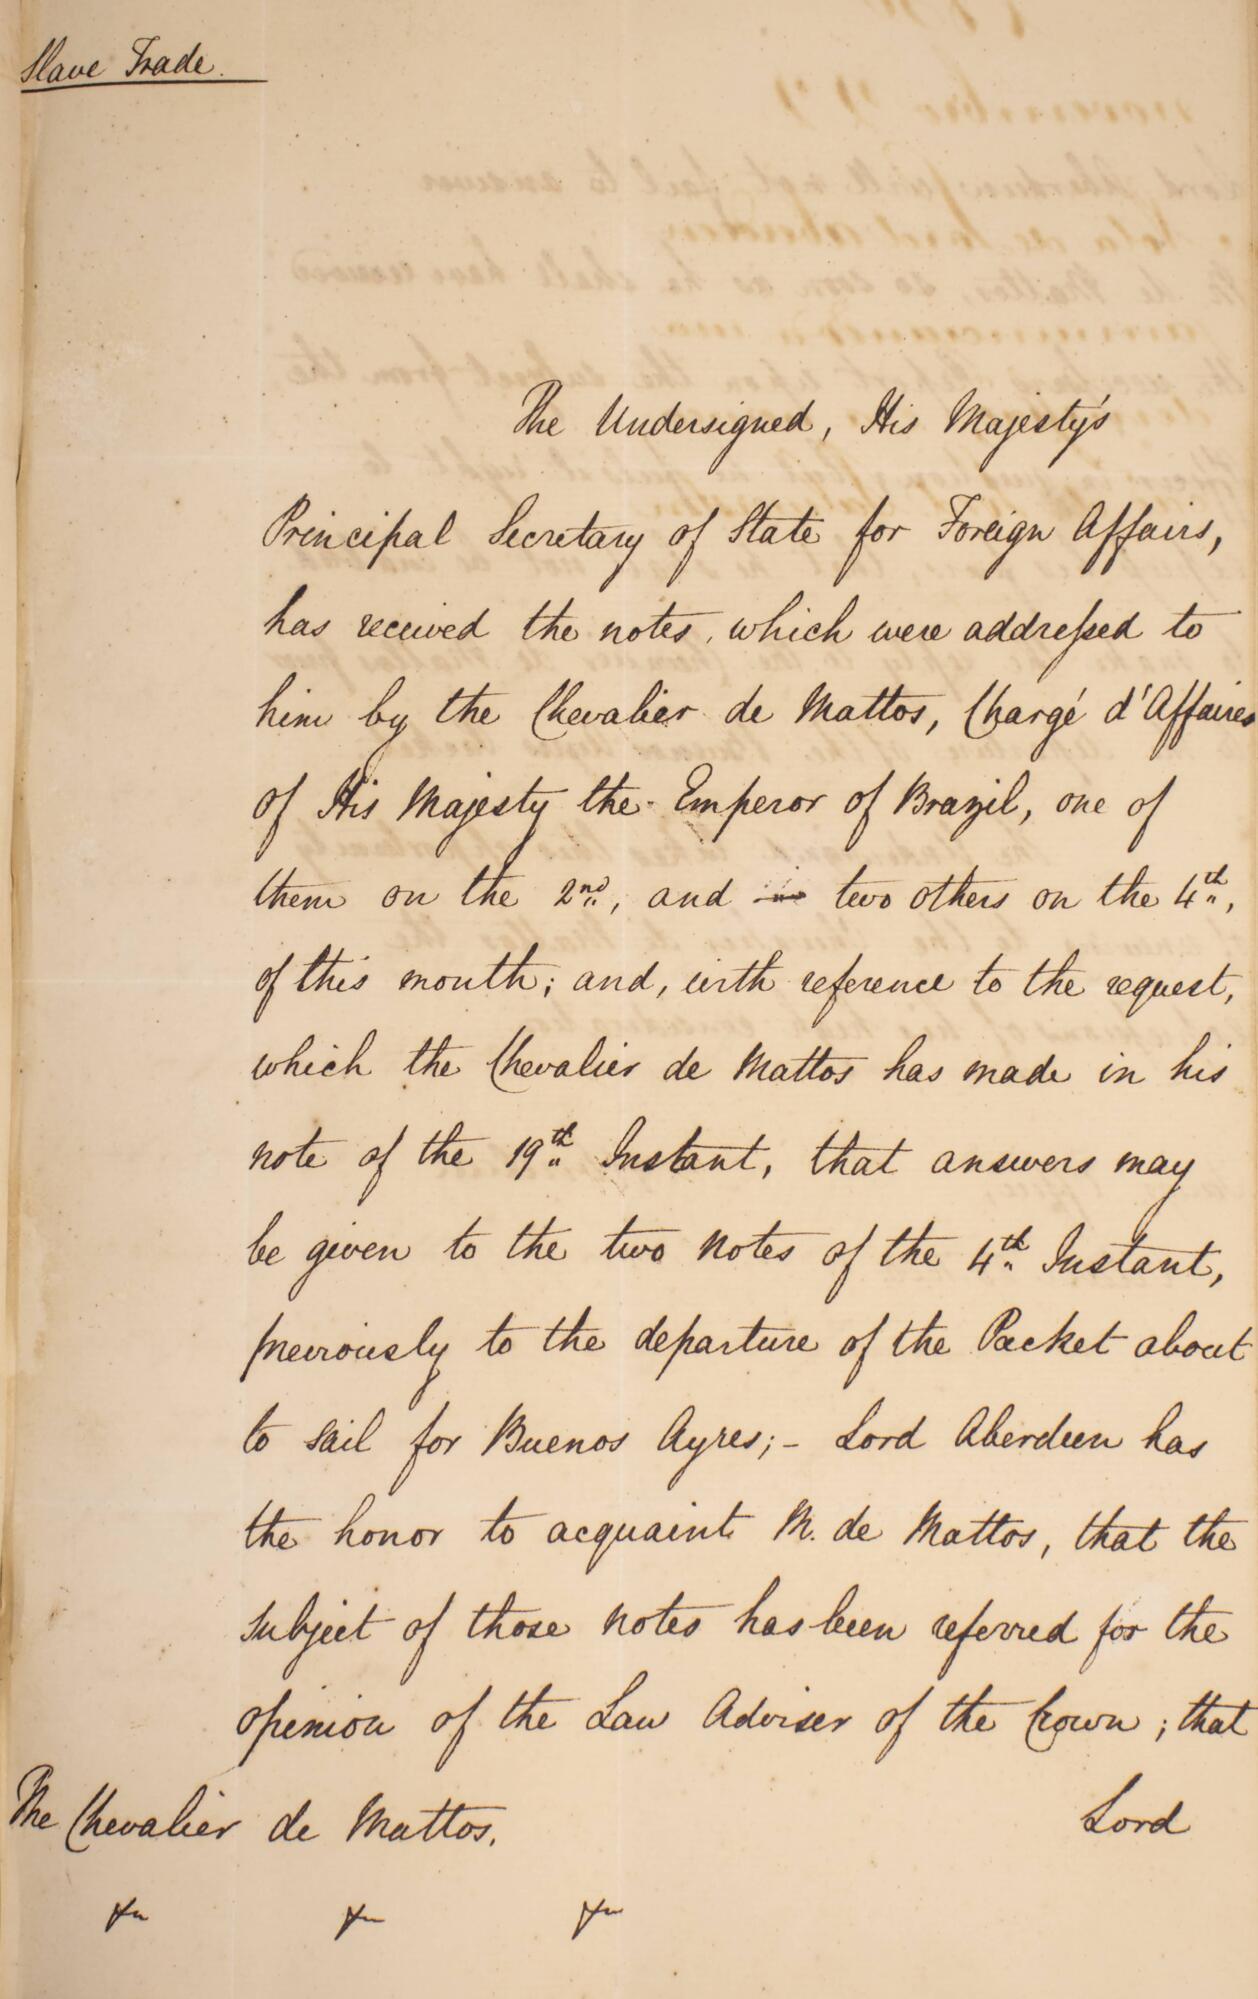 Slave Trade.
The Undersigned, His Majesty's
Principal Secretary of State for Foreign Affairs,
has received the notes, which were addreſsed to
him by the Chevalier de Mattos, Chargé d'Affaires
of His Majesty the Emperor of Brazil, one of
them on the 2nd, and two others on the 4th,
of this month; and, with reference to the request,
which the Chevalier de Mattos has made in his
note of the 19th Instant, that answers may
be given to the two notes of the 4th Instant,
previously to the departure of the Packet about
to sail for Buenos Ayres;- Lord Aberdeen has
the honor to acquaint M. de Mattos, that the
subject of those notes has been referred for the
opinion of the Law Adviser of the Crown; that
Lord
The Chevalier de Mattos.